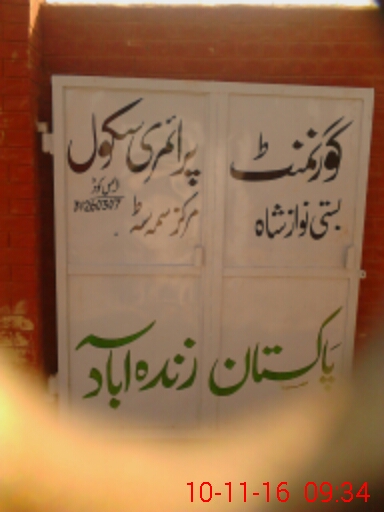 گورنمنٹ پرائمری سکول
بستی نواز شاہ مرکز سمہ سٹہ
ایمس کوڈ
31260307
پاکستان زندہ آباد
10-11-16 09.34